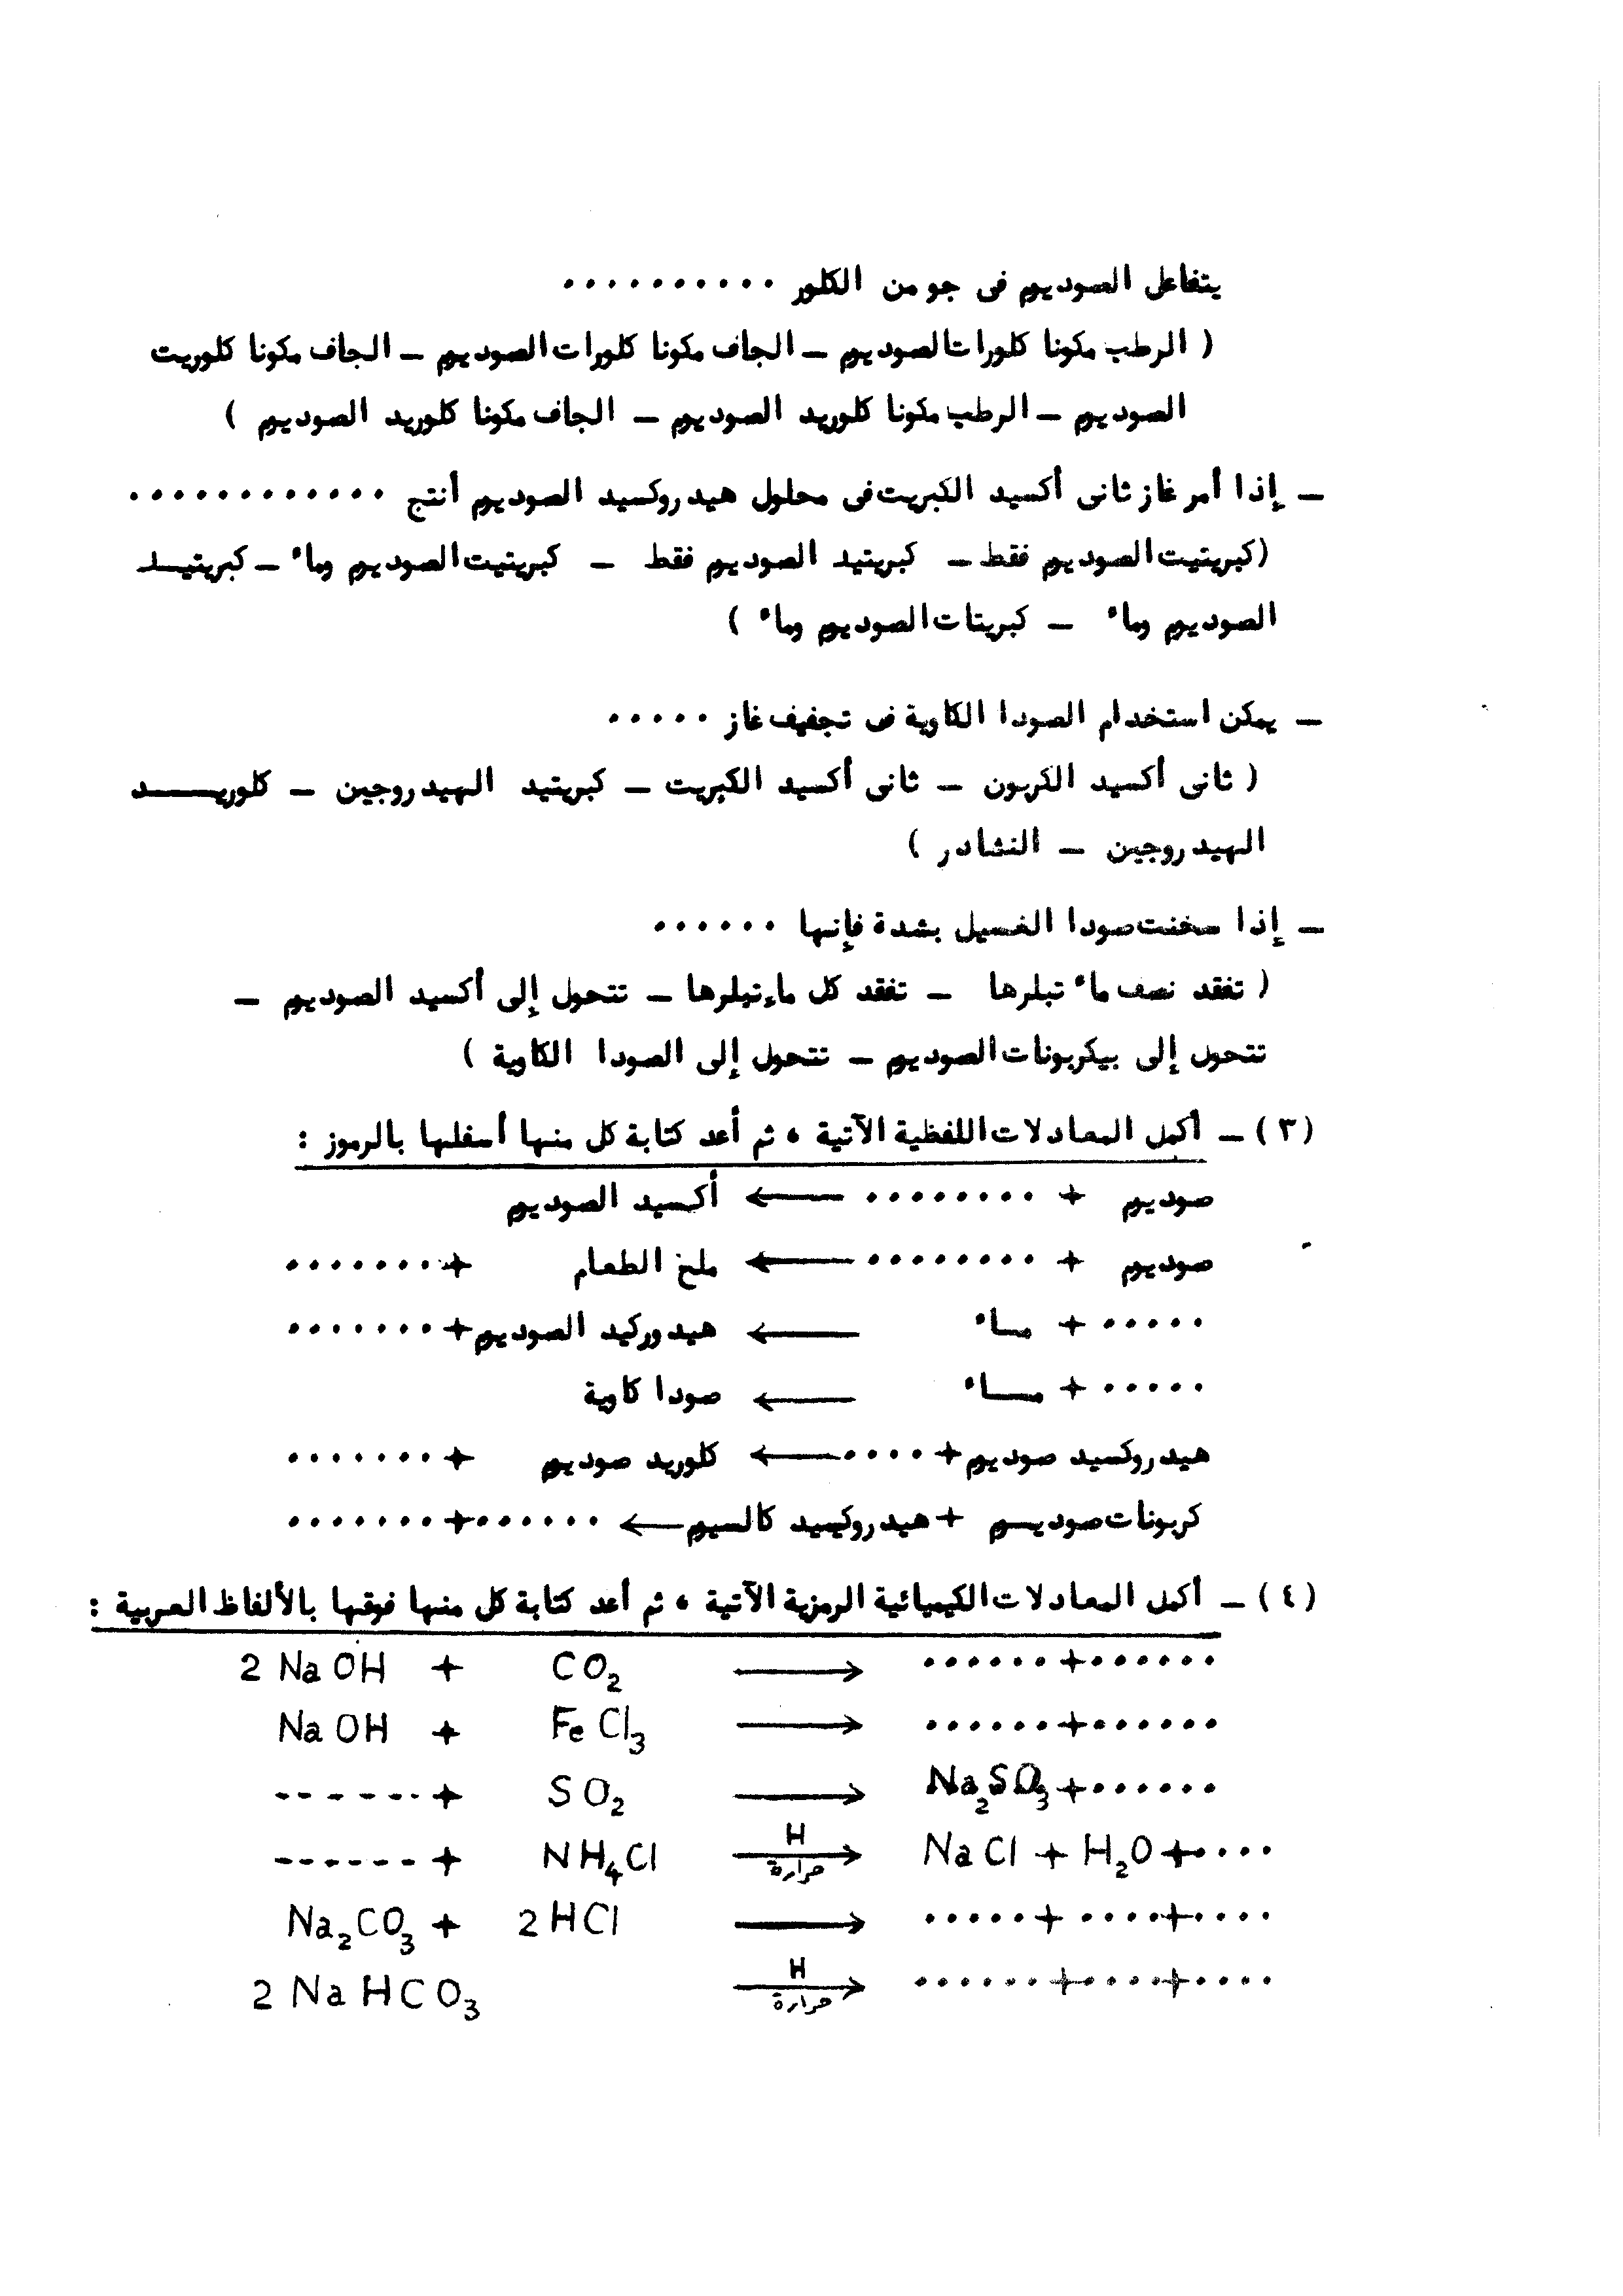 يتفاعل الصوديوم فى جو من الكلور ..........
( الرطب مكونا كلورات الصوديوم – الجاف مكونا كلورات الصوديوم – الجاف مكونا كلوريت
الصوديوم – الرطب مكونا كلوريد الصوديوم – الجاف مكونا كلوريد الصوديوم )
– إذا أمر غاز ثانى أكسيد الكبريت فى محلول هيدروكسيد الصوديوم أنتج ............
(كبريتيت الصوديوم فقط – كبريتيد الصوديوم فقط – كبريتيت الصوديوم وماء – كبريتيـــد
الصوديوم وماء – كبريتات الصوديوم وماء )
– يمكن استخدام الصودا الكاوية فى تجفيف غاز .....
( ثانى أكسيد الكربون – ثانى أكسيد الكبريت – كبريتيد الهيدروجين – كلوريـــــد
الهيدروجين – النشادر )
– إذا سخنت صودا الغسيل بشدة فإنها ......
( تفقد نصف ماء تبلرها – تفقد كل ماء تبلرها – تتحول إلى أكسيد الصوديوم –
تتحول إلى بيكربونات الصوديوم – تتحول إلى الصودا الكاوية )
(٣) – أكمل المعادلات اللفظية الآتية ، ثم أعد كتابة كل منها أسفلها بالرموز :
صوديوم + ........ ← أكسيد الصوديوم
صوديوم + ........ ← ملح الطعام + .......
..... + مـاء ← هيدوركيد الصوديوم + .......
..... + مــاء ← صودا كاوية
هيدروكسيد صوديوم + .... ← كلوريد صوديوم + .......
كربونات صوديـوم + هيدروكيسيد كالسيوم ← ...... + .......
(٤) – أكمل المعادلات الكيميائية الرمزية الآتية ، ثم أعد كتابة كل منها فوقها بالألفاظ العربية :
2 NaOH + CO₂ → ...... + ......
NaOH + FeCl₃ → ...... + ......
------ + SO₂ → Na₂SO₃ + ......
------ + NH₄Cl →H حرارة NaCl + H₂O + ....
Na₂CO₃ + 2HCl → ..... + .... + ....
2 NaHCO₃ →H حرارة ...... + .... + ....